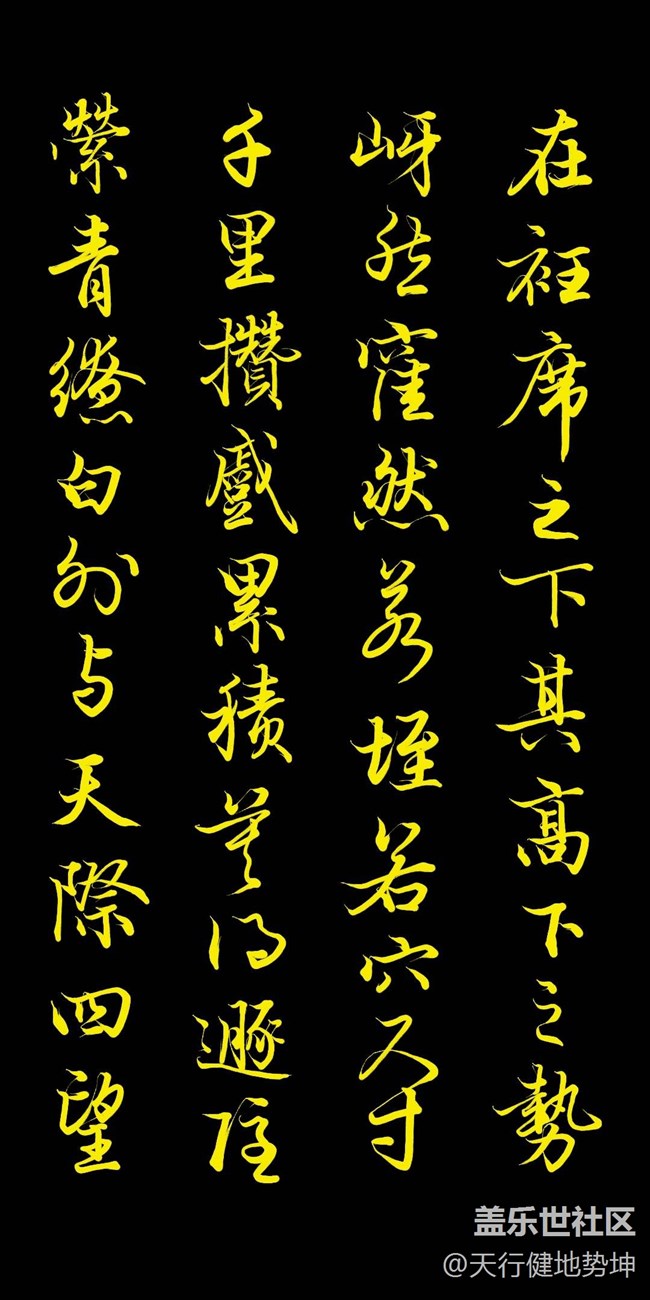 在衽席之下其高下之勢
岈然窪然若垤若穴尺寸
千里攢蹙累積莫得遯隱
縈青繚白外与天際四望
盖乐世社区
@天行健地势坤